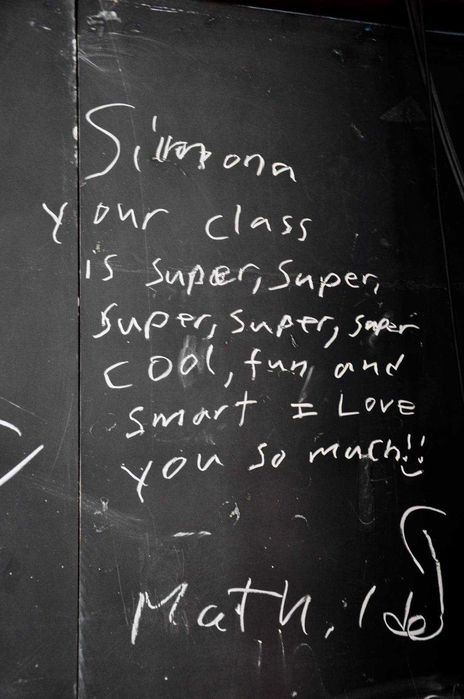 Simona
your class
is super, super,
super, super, super
cool, fun, and
smart I Love
you so much!!
Math, lde